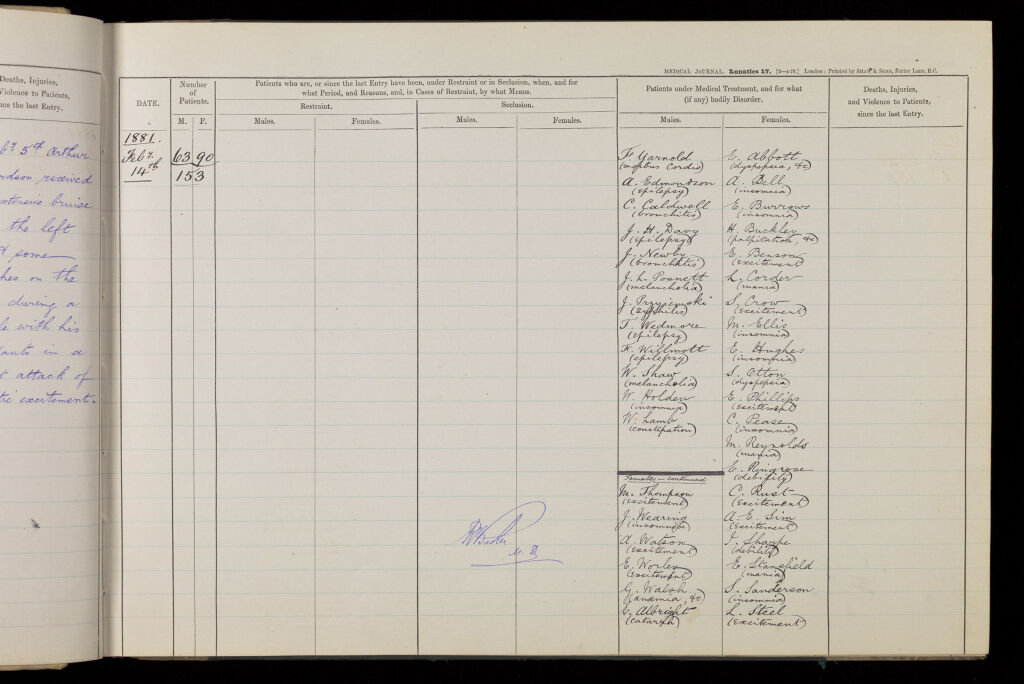 Deaths, Injuries,
Violence to Patients,
since the last Entry.
5th Arthur
received
extensive bruise
the left
some
on the
during a
with his
in a
attack of
excitement.
MEDICAL JOURNAL. Lunatics 17. [2—4-79.] London: Printed by SHAW & SONS, Fetter Lane, E.C.
DATE.
Number
of
Patients.
M. F.
Patients who are, or since the last Entry have been, under Restraint or in Seclusion, when, and for
what Period, and Reasons, and, in Cases of Restraint, by what Means.
Restraint.
Seclusion.
Males. Females.
Males. Females.
Patients under Medical Treatment, and for what
(if any) bodily Disorder.
Males. Females.
Deaths, Injuries,
and Violence to Patients,
since the last Entry.
1881.
Feby.
14th
63 90
153
F. Yarnold
(morbus Cordis)
A. Edmondson
(epilepsy)
C. Caldwell
(bronchitis)
J. H. Davy
(epilepsy)
J. Newby
(bronchitis)
J. L. Posnett
(melancholia)
J. Przyiemski
(syphilis)
T. Wedmore
(epilepsy)
K. Willmott
(epilepsy)
W. Shaw
(melancholia)
W. Holden
(insomnia)
W. Lamb
(constipation)
E. Abbott
(dyspepsia, &c)
A. Bell
(insomnia)
E. Burrows
(insomnia)
H. Buckley
(palpitation, &c)
E. Benson
(excitement)
L. Corder
(mania)
S. Crow
(excitement)
M. Ellis
(insomnia)
E. Hughes
(insomnia)
S. Otton
(dyspepsia)
E. Phillips
(excitement)
C. Pease
(insomnia)
M. Reynolds
(mania)
E. Ringrose
(debility)
C. Rust
(excitement)
A. E. Sim
(excitement)
I. Sharpe
(debility)
E. Stansfield
(mania)
S. Sanderson
(insomnia)
L. Steel
(excitement)
Females—continued
M. Thompson
(excitement)
J. Wearing
(insomnia)
A. Watson
(excitement)
E. Worley
(excitement)
G. Walsh
(anaemia, &c)
C. Albright
(catarrh)
R Baker
M.D.